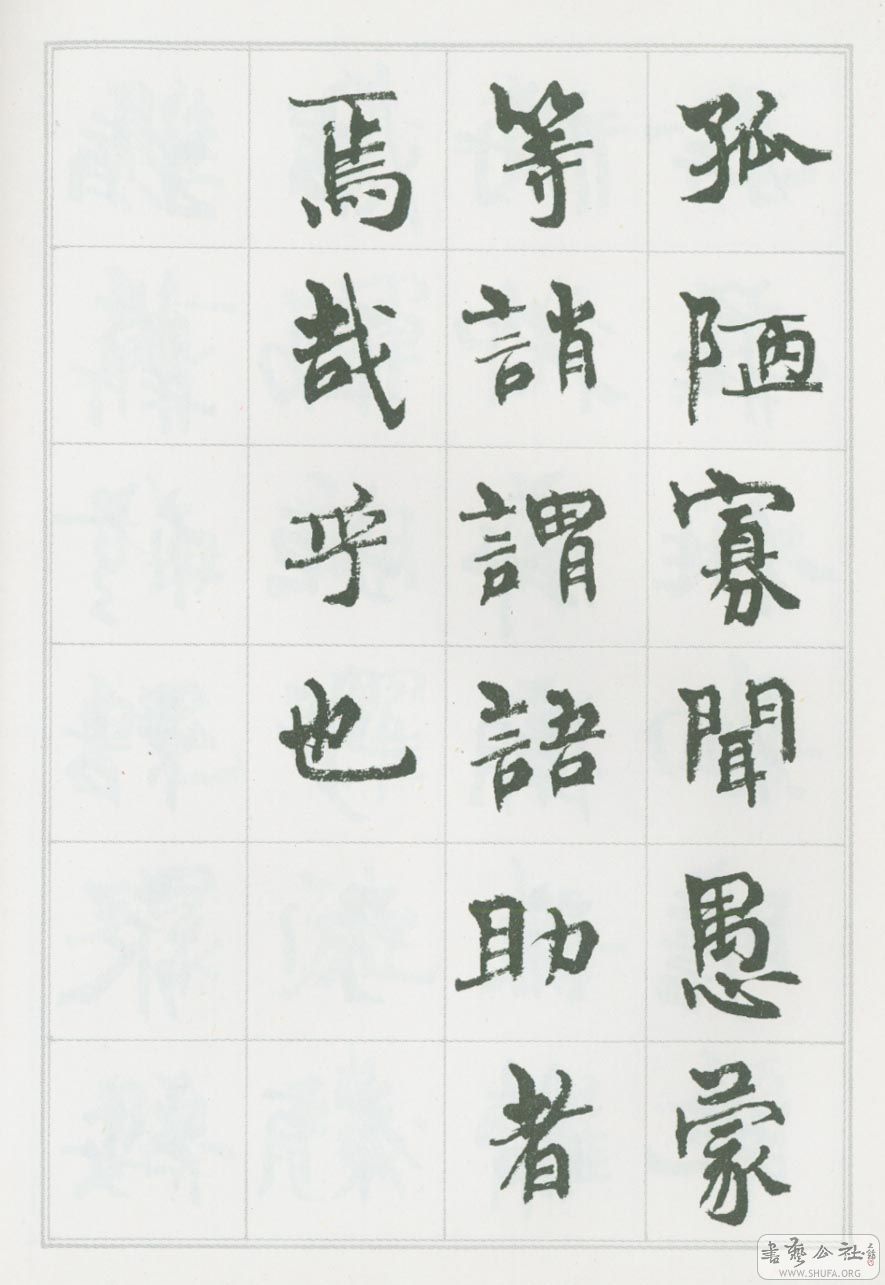 孤陋寡聞愚蒙
等誚謂語助者
焉哉乎也
書藝公社
WWW.SHUFA.ORG